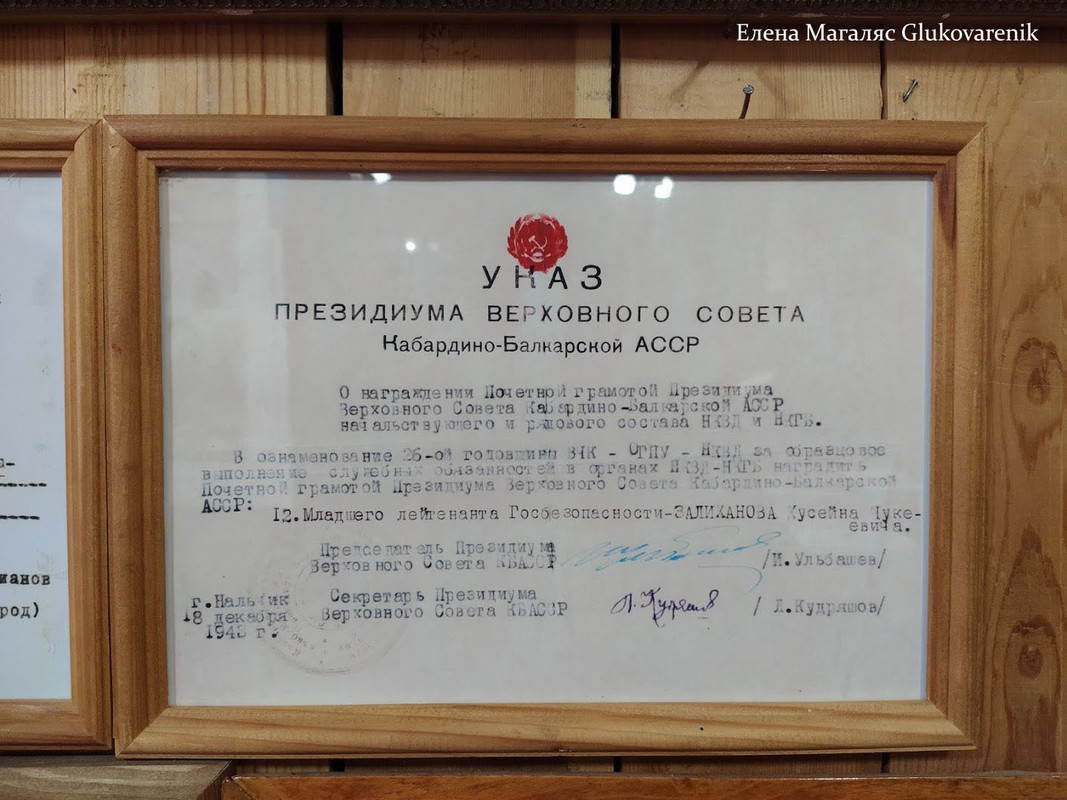 Елена Магаляс Glukovarenik
УКАЗ
ПРЕЗИДИУМА ВЕРХОВНОГО СОВЕТА
Кабардино-Балкарской АССР
О награждении Почетной грамотой Президиума
Верховного Совета Кабардино-Балкарской АССР
начальствующего и рядового состава НКВД и НКГБ.
В ознаменование 26-ой годовщины ВЧК - ОГПУ - НКВД за образцовое
выполнение служебных обязанностей в органах НКВД-НКГБ наградить
Почетной грамотой Президиума Верховного Совета Кабардино-Балкарской
АССР:
12.Младшего лейтенанта Госбезопасности-ЗАЛИХАНОВА Хусейна Чуке-
евича.
Председатель Президиума
Верховного Совета КБАССР /И.Ульбашев/
г.Нальчик Секретарь Президиума
18 декабря Верховного Совета КБАССР Л.Кудряшов / Л.Кудряшов/
1943 г.
манов
род)